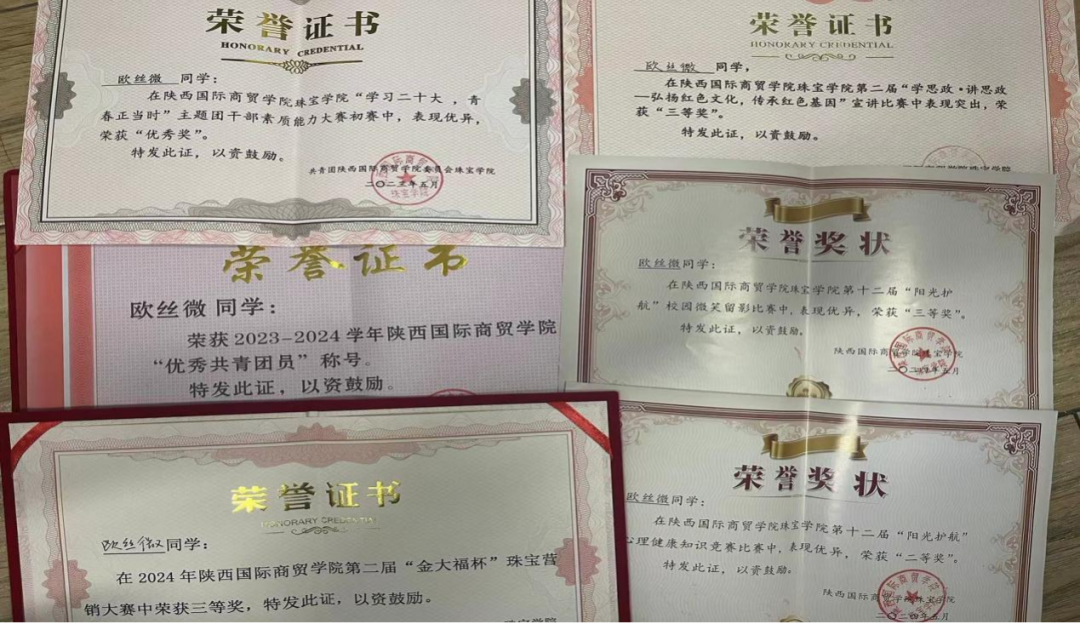 荣誉证书
HONORARY CREDENTIAL
欧丝微 同学:
在陕西国际商贸学院珠宝学院“学习二十大,青
春正当时”主题团干部素质能力大赛初赛中,表现优异,
荣获“优秀奖”。
特发此证,以资鼓励。
共青团陕西国际商贸学院委员会珠宝学院
荣誉证书
HONORARY CREDENTIAL
欧丝微 同学,
在陕西国际商贸学院珠宝学院第二届“学思政·讲思政
—弘扬红色文化,传承红色基因”宣讲比赛中表现突出,荣
获“三等奖”。
特发此证,以资鼓励。
荣誉证书
欧丝微 同学:
荣获2023-2024学年陕西国际商贸学院
“优秀共青团员”称号。
特发此证,以资鼓励。
荣誉奖状
欧丝微同学:
在陕西国际商贸学院珠宝学院第十二届“阳光护
航”校园微笑留影比赛中,表现优异,荣获“三等奖”。
特发此证,以资鼓励。
陕西国际商贸学院珠宝学院
荣誉证书
HONORARY CREDENTIAL
欧丝微同学:
在2024年陕西国际商贸学院第二届“金大福杯”珠宝营
销大赛中荣获三等奖,特发此证,以资鼓励。
荣誉奖状
欧丝微同学:
在陕西国际商贸学院珠宝学院第十二届“阳光护航”
心理健康知识竞赛比赛中,表现优异,荣获“二等奖”。
特发此证,以资鼓励。
陕西国际商贸学院珠宝学院
二〇二四年五月